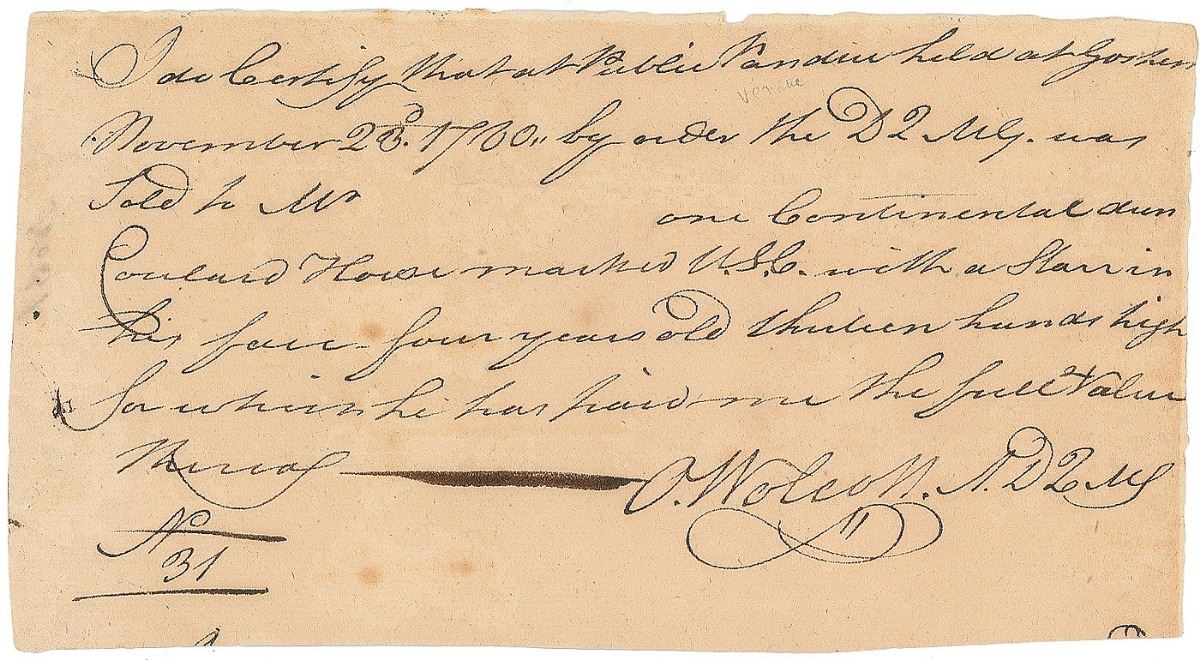 I do Certify that at Public Vandue held at Goshen
venue
November 28.d 1780,, by order the D Q M G. was
Sold to Mr one Continental dun
Coulard Horse marked U.S.C. with a Starr in
his face four years old thirteen hands high
for which he has paid me the full Value
thereof O. Wolcott. A. D Q M G
No
31